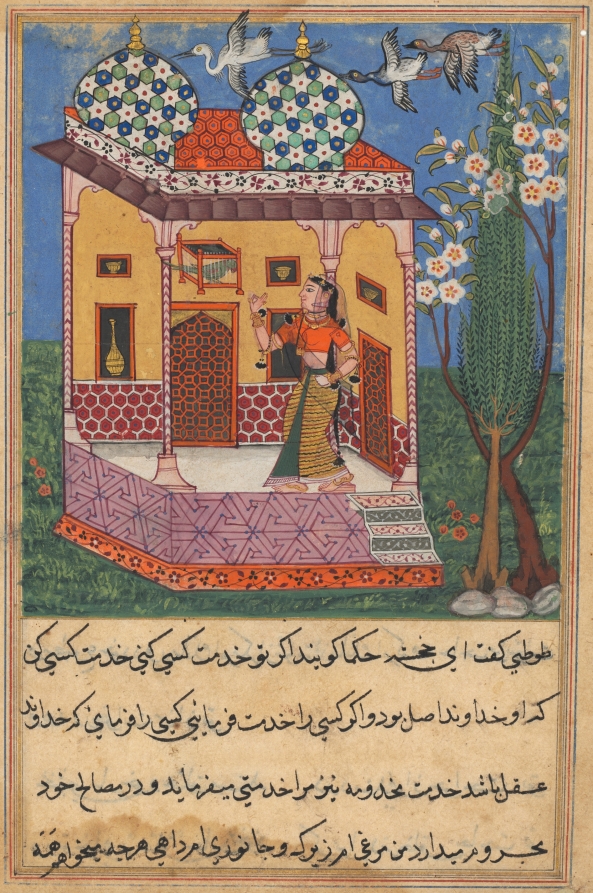 طوطی کفت ای خجسته حکما کویند اکر تو خدمت کسی کنی خدمت کسی کن
که او خداوند اصل بود و اکر کسی را خدمت فرمائی کسی را فرمای که خداوند
عقل باشد خدمت مخدومه نیز مرا خدمتی میفرماید و در مصالح خود
محروم میدارد من مرغی ام زیرک و جانوری ام داهی هرچه میخواهم همه